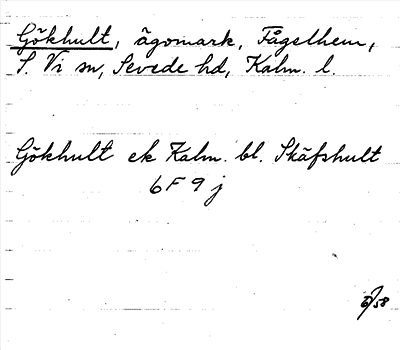 Gökhult, ägomark, Fågelhem,
S. Vi sn, Sevede hd, Kalm. l.
Gökhult ek Kalm. bl. Skäfshult
6F9j